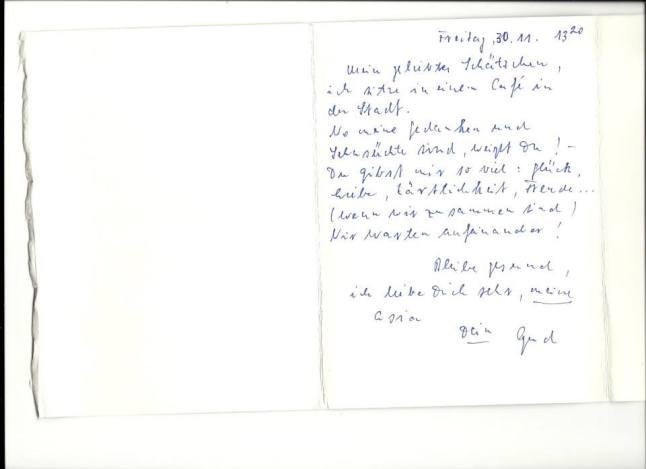 Freitag, 30.11. 13²⁰
Mein geliebtes Schätzchen,
ich sitze in einem Café in
der Stadt.
Wo meine Gedanken und
Sehnsüchte sind, weißt Du! –
Du gibst mir so viel: Glück,
Liebe, Zärtlichkeit, Freude...
(wenn wir zusammen sind)
Wir warten aufeinander!
Bleibe gesund,
ich liebe Dich sehr, meine
Asia
Dein Gerd